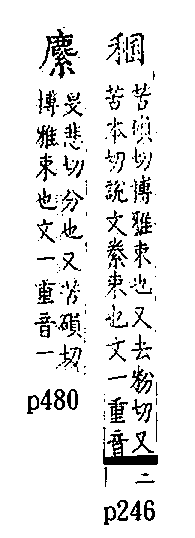 稇
苦磒切博雅束也又去粉切又
苦本切說文絭束也文一重音
二
p246
旻悲切分也又苦磒切
博雅束也文一重音一
p480